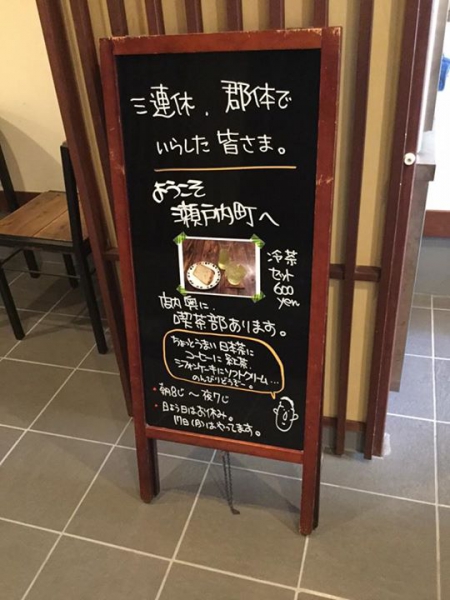 三連休、郡体で
いらした皆さま。
ようこそ
瀬戸内町へ
冷茶
セット
600
yen
店内奥に、
喫茶部あります。
ちょっとうまい日本茶に
コーヒーに紅茶、
シフォンケーキにソフトクリーム…
のんびりどうぞー。
・朝8じ〜夜7じ
・日よう日はお休み。
17日(月)はやってます。